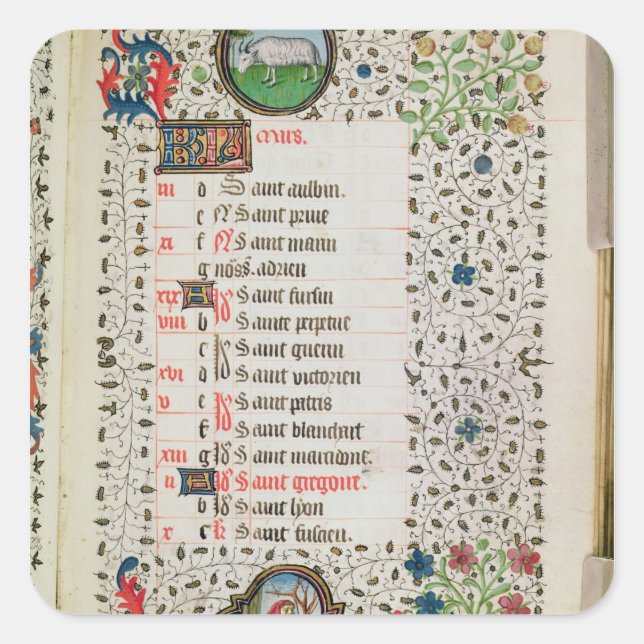 KL Mars.
iii d Saint aulbin.
e N Saint priue
xi f N Saint marin
g nōs S. adrien
xix A Saint fursin
viii b Sainte perpetue
c Saint guerin
xvi d Saint victorien
v e Saint patris
f Saint blanchart
xiii g Saint macidone
ii A Saint gregoire.
b Saint lyon
x c k Saint fuscien.